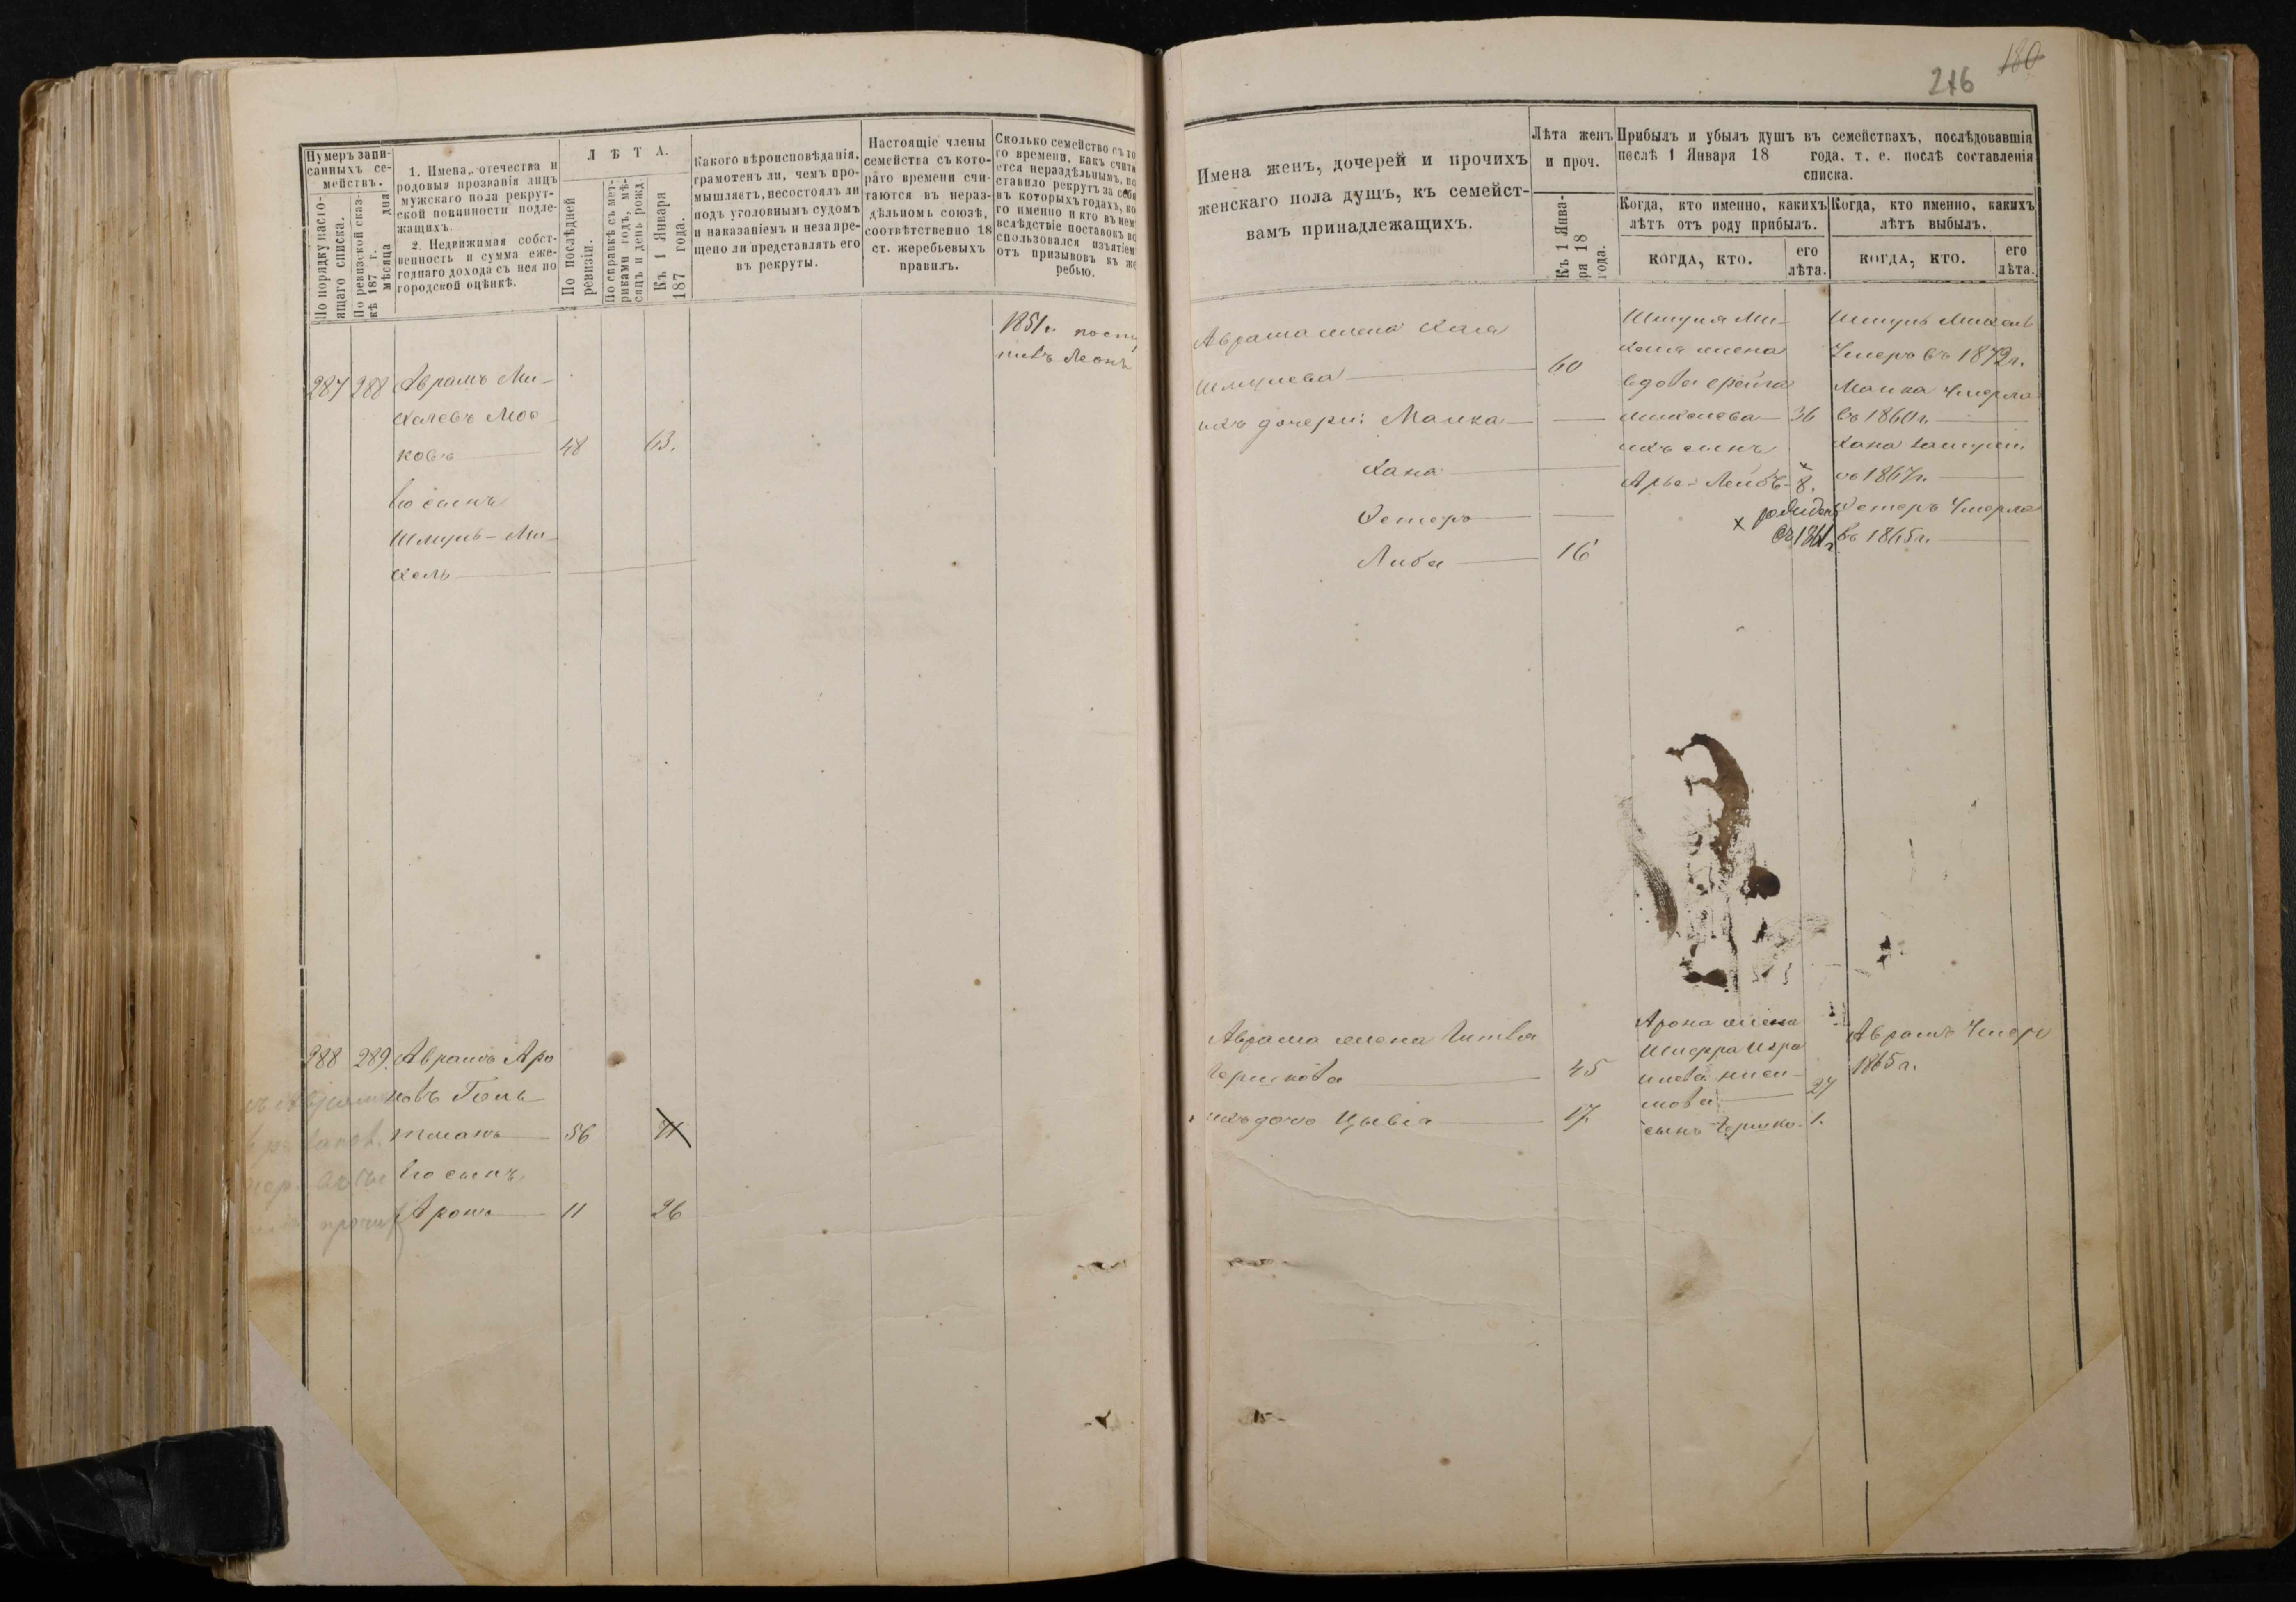 216 180
Нумеръ запи-
санныхъ се-
мействъ.
По порядку насто-
ящаго списка.
По ревизской сказ-
кѣ 187 г.
мѣсяца дня
1. Имена, отечества и
родовыя прозванія лицъ
мужскаго пола рекрут-
ской повинности подле-
жащихъ.
2. Недвижимая собст-
венность и сумма еже-
годнаго дохода съ нея по
городской оцѣнкѣ.
ЛѢТА.
По послѣдней
ревизіи.
По справкѣ съ мет-
риками годъ, мѣ-
сяцъ и день рожд
Къ 1 Января
187 года.
Какого вѣроисповѣданія,
грамотенъ ли, чѣмъ про-
мышляетъ, несостоялъ ли
подъ уголовнымъ судомъ
и наказаніемъ и незапре-
щено ли представлять его
въ рекруты.
Настоящіе члены
семейства съ кото-
раго времени счи-
таются въ нераз-
дѣльномъ союзѣ,
соотвѣтственно 18
ст. жеребьевыхъ
правилъ.
Сколько семейство съ то
го времени, какъ счита
ется нераздѣльнымъ, по
ставило рекрутъ за себя
въ которыхъ годахъ, ко
го именно и кто въ нем
вслѣдствіе поставокъ во
спользовался изъятіем
отъ призывовъ къ же
ребью.
1851 г. посту
287 288 Аврамъ Ми-
халевъ Мос
ковъ 48 63.
Его сынъ
Шмуль-Ми-
хель
288 289. Аврамъ Аро
новъ Голь
тманъ 56 71
Его сынъ
Аронъ 11 26
Имена женъ, дочерей и прочихъ
женскаго пола душъ, къ семейст-
вамъ принадлежащихъ.
Лѣта женъ
и проч.
Къ 1 Янва-
ря 18
года.
Прибылъ и убылъ душъ въ семействахъ, послѣдовавшія
послѣ 1 Января 18 года, т. е. послѣ составленія
списка.
Когда, кто именно, какихъ
лѣтъ отъ роду прибылъ.
КОГДА, КТО.
его
лѣта.
Когда, кто именно, какихъ
лѣтъ выбылъ.
КОГДА, КТО.
его
лѣта.
Аврама жена Хая
Шмулева 60
ихъ дочери: Малка
Хана
Эстеръ
Либа 16
Шмуля Ми-
хеля жена
вдова Фрейга
Михелева 36
ихъ сынъ
Арье-Лейбъ 8.
х
х родился
въ 1861 г
Шмуль Михель
Умеръ въ 1872 г.
Малка Умерла
въ 1860 г.
Хана
въ 1867 г.
Эстеръ Умерла
въ 1865 г.
Аврама жена Гитля
Гершкова 45
ихъ дочь Цывіа 17
Арона жена
27
сынъ Гершко. 1.
Аврамъ Умеръ
1865 г.